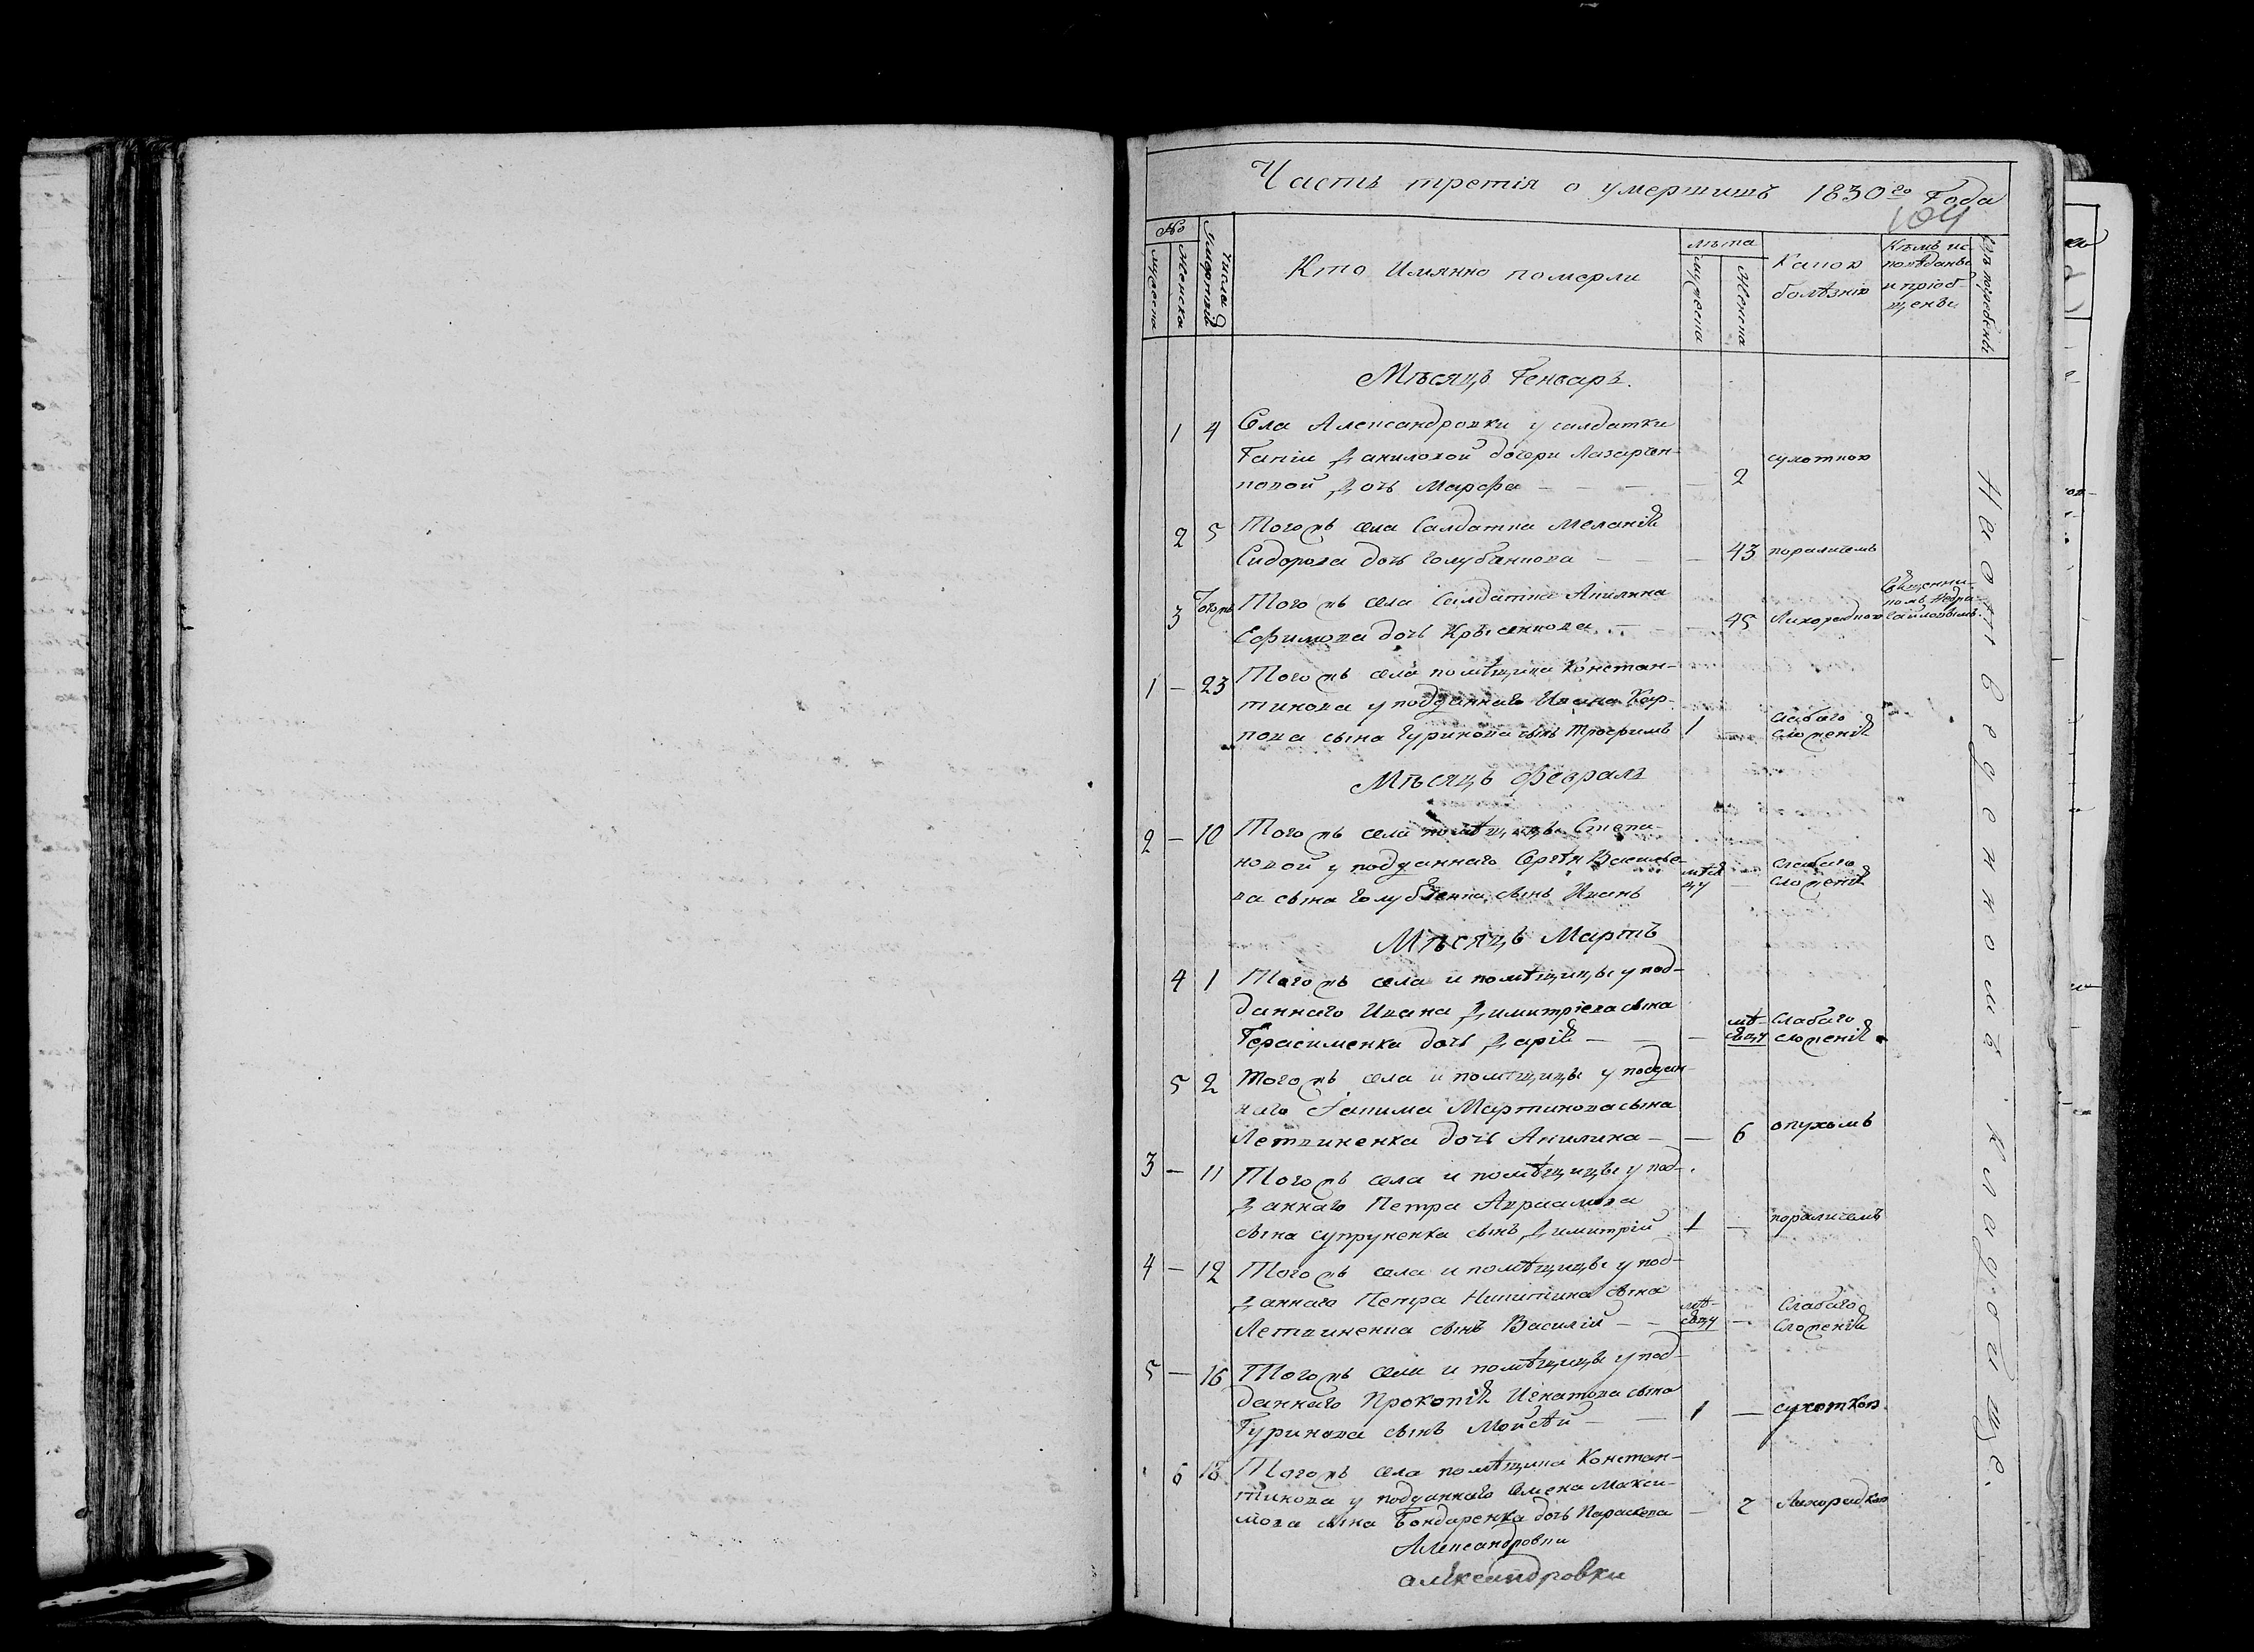 Часть третія о умершихъ 1830го Года
104
№
мужеска
Женска
Числа
Умертвій
Кто Имянно померли
лѣта
мужеска
Женска
Какою
болѣзнію
Кѣмъ ис-
повѣданы
и пріоб-
щены
Гдѣ погребены
Мѣсяцъ Генварь.
1 4 Села Александровки у салдатки
Гапіи Даниловой дочери Лазарчен-
ковой дочь Марфа — — — — 2 сухоткою
2 5 Того жъ села Салдатка Меланія
Сидорова дочь Голубанкова — — — 43 пораличемъ
3 Того жъ Того жъ села Салдатка Акилина
Ефимова дочь Крысанкова — — 45 Лихорадкою
Священни-
комъ
1 — 23 Того жъ села помѣщика Констан-
тинова у подданнаго Ивана Кар-
пова сына Гуринова сынъ Трофимъ 1 — слабаго
сложенія
Мѣсяцъ Февраль
2 — 10 Того жъ села помѣщицы Степа-
новой у подданнаго Сергѣя Василье-
ва сына Голубенка сынъ Иванъ мѣся
цу — слабаго
сложенія
Мѣсяцъ Мартъ
4 1 Того жъ села и помѣщицы у под-
даннаго Ивана Димитріева сына
Герасименка дочь Дарія — — — мѣ-
сяцу слабаго
сложенія
5 2 Того жъ села и помѣщицы у поддан-
наго Іакима Мартинова сына
Летвиненка дочь Акилина — — 6 опухомъ
3 — 11 Того жъ села и помѣщицы у под-
даннаго Петра Авраамова
сына супруненка сынъ Димитрій 1 — пораличемъ
4 — 12 Того жъ села и помѣщицы у под-
даннаго Петра Никитина сына
Летвиненка сынъ Василій — — мѣ-
сяцу — Слабаго
Сложенія
5 — 16 Того жъ села и помѣщицы у под-
даннаго Прокопія Игнатова сына
Гуринова сынъ Мойсѣй — — 1 — сухоткою
6 18 Того жъ села помѣщика Констан-
тинова у подданнаго Семена Макси-
мова сына Бондаренка дочь Параскева — 2 Лихорадкою
Александровки
александровки
На отведенномъ кладбище.